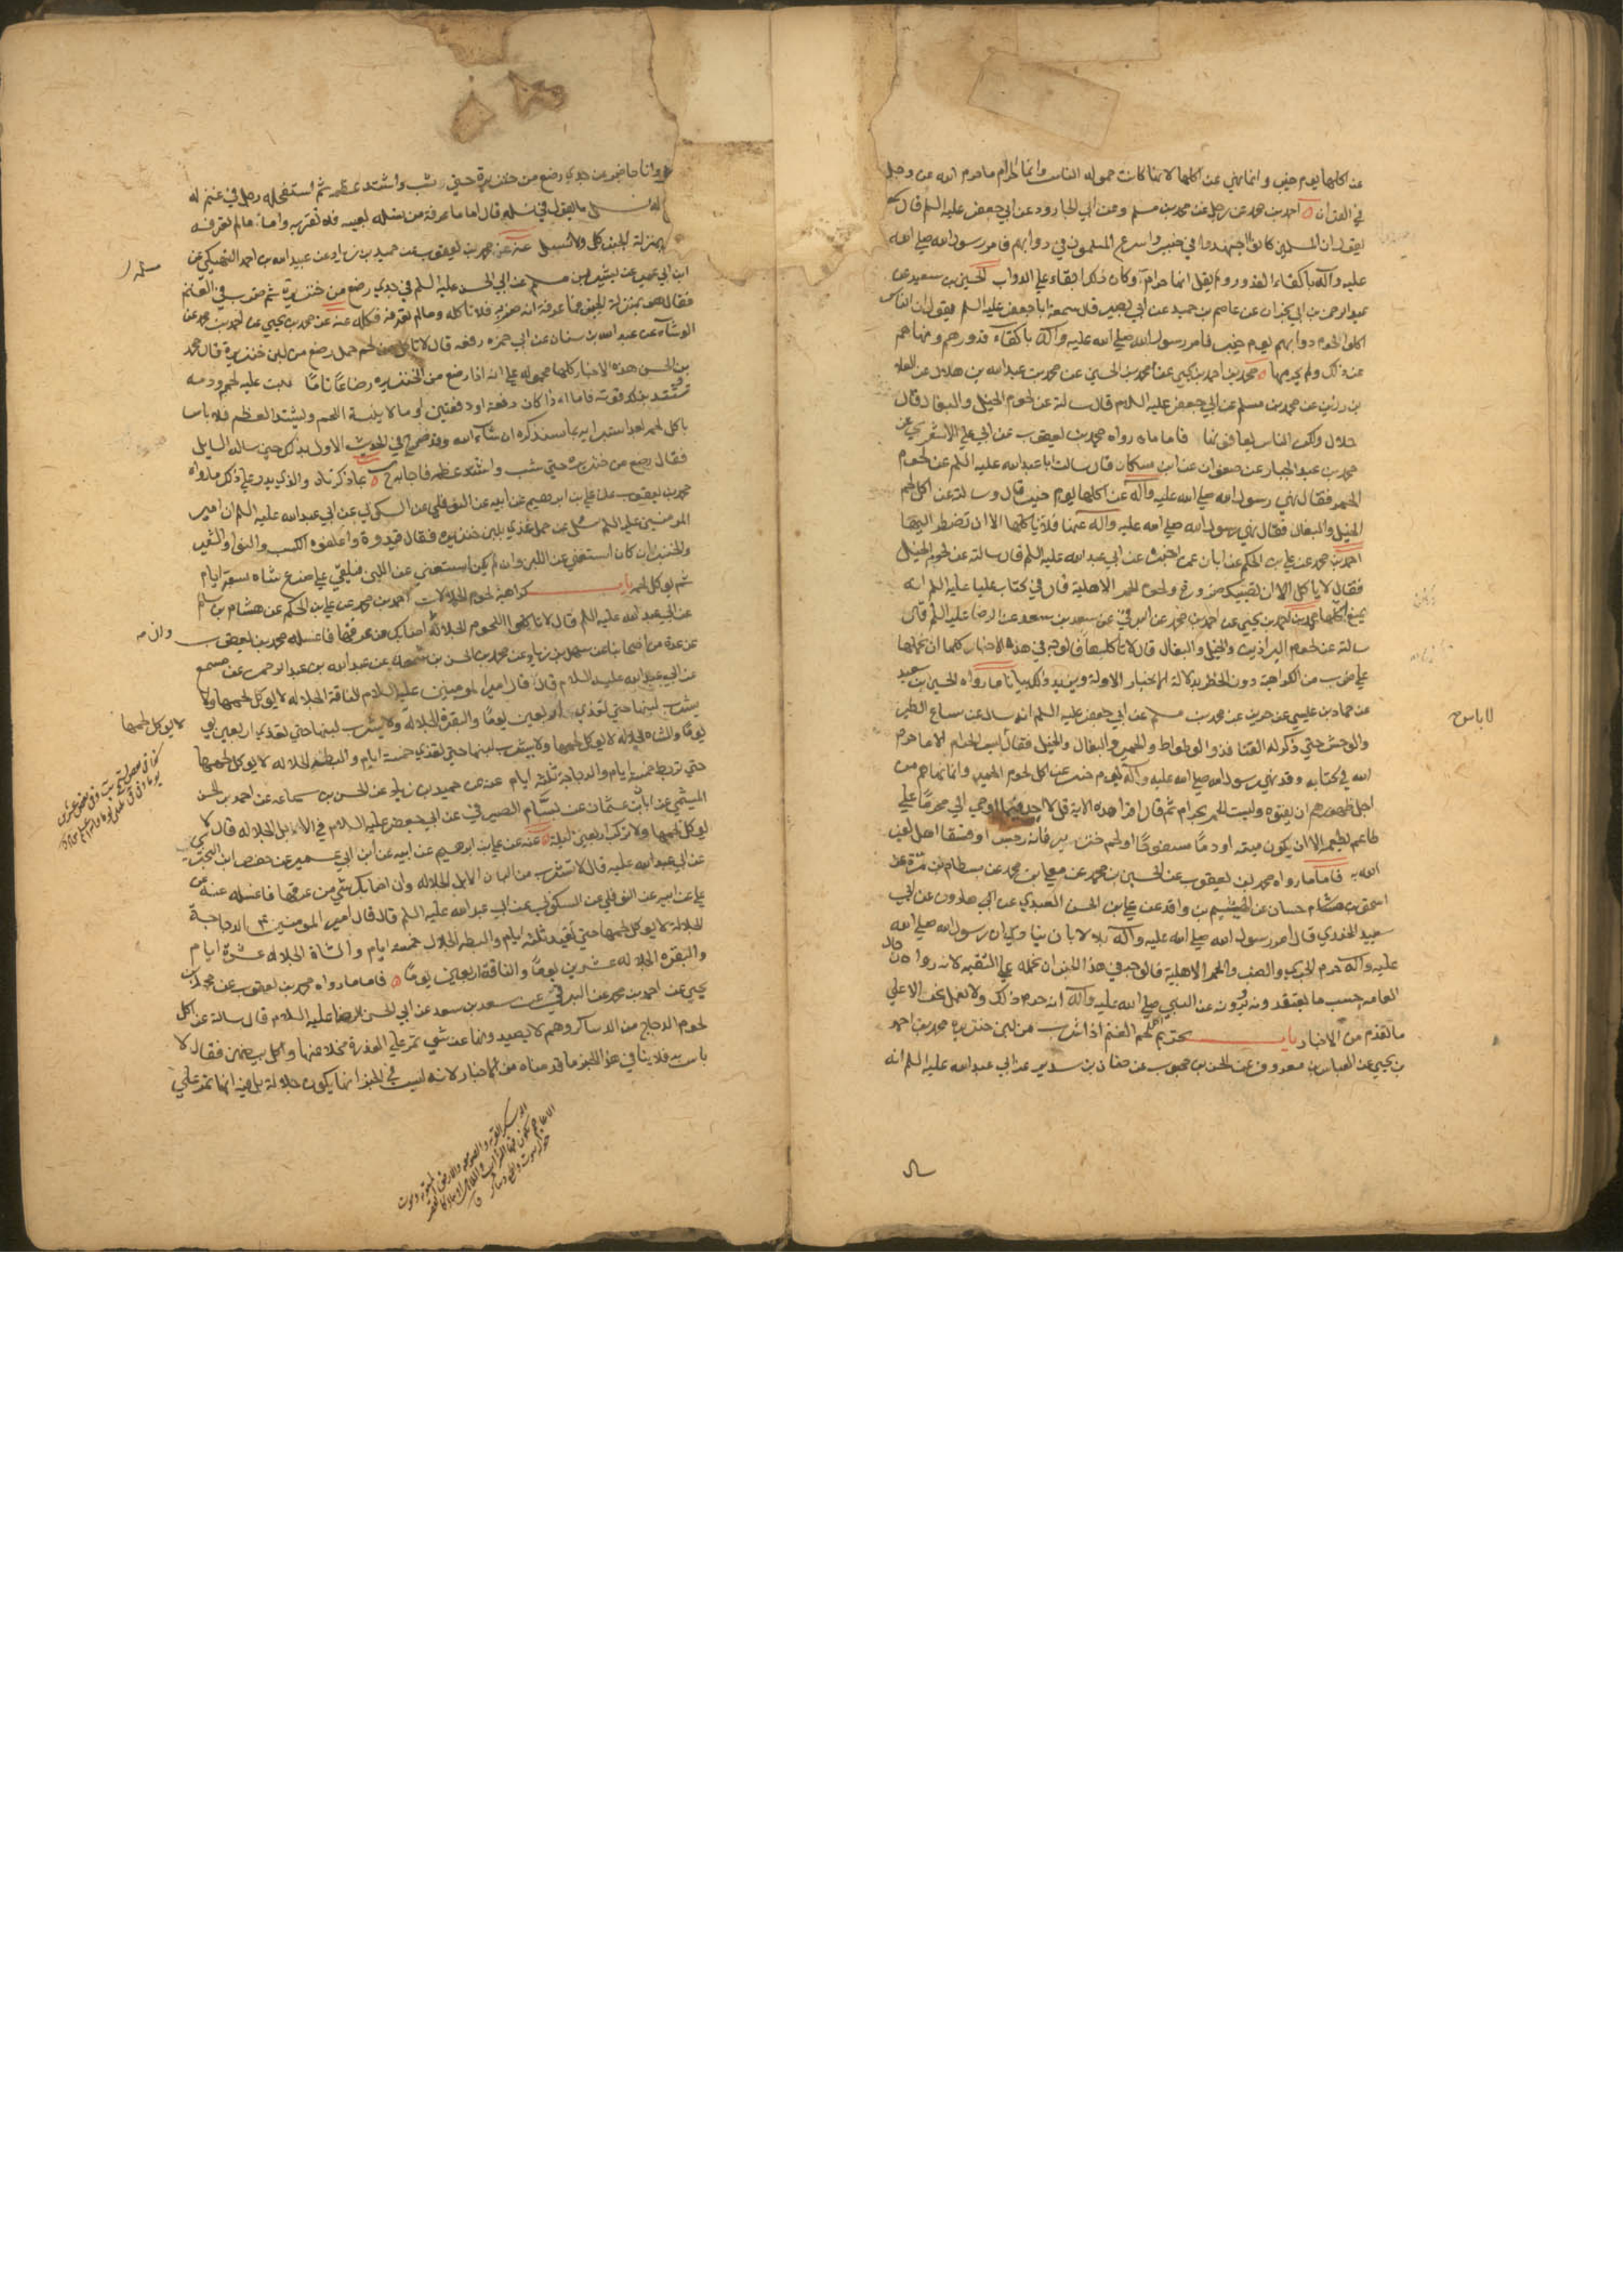 عن اكلها يوم خيبر وانما نهي عن اكلها لانها كانت حمولة الناس وانما الحرام ما حرم الله عز وجل
في القران احمد بن محمد عن رجل عن محمد بن مسلم وعن ابي الجارود عن ابي جعفر عليه السلم قال سمعته
يقول ان المسلمين كانوا اجهدوا في خيبر واسرع المسلمون في دوابهم فامر رسول الله صلي الله
عليه وآله باكفاء القدور ولم يقل انها حرام وكان ذلك ابقاء علي الدواب الحسين بن سعيد عن
عبد الرحمن بن ابي نجران عن عاصم بن حميد عن ابي بصير قال سمعت ابا جعفر عليه السلم يقول ان الناس
اكلوا لحوم دوابهم يوم خيبر فامر رسول الله صلي الله عليه وآله باكفاء قدورهم ونهاهم
عن ذلك ولم يحرمها محمد بن احمد بن يحيي عن احمد بن محمد بن الحسين عن محمد بن عبد الله بن هلال عن العلا
بن رزين عن محمد بن مسلم عن ابي جعفر عليه السلام قال سالته عن لحوم الخيل والبغال فقال
حلال ولكن الناس يعافونها فاما ما رواه محمد بن يعقوب عن ابي علي الاشعري عن
محمد بن عبد الجبار عن صفوان عن ابن مسكان قال سالت ابا عبد الله عليه السلم عن لحوم
الحمر فقال نهي رسول الله صلي الله عليه وآله عن اكلها يوم خيبر قال وسالته عن اكل لحم
الخيل والبغال فقال نهي رسول الله صلي الله عليه وآله عنها فلا تاكلها الا ان تضطر اليها
احمد بن محمد عن علي بن الحكم عن ابان عمن اخبره عن ابي عبد الله عليه السلم قال سالته عن لحوم الخيل
فقال لا ياكل الا ان تصيبك ضرورة ولحوم الحمر الاهلية قال في كتاب علي عليه السلم انه
يمنع اكلها محمد بن احمد بن يحيي عن احمد بن محمد عن البرقي عن سعد بن سعد عن الرضا عليه السلم قال
سالته عن لحوم البراذين والخيل والبغال قال لا تاكلها فالوجه في هذه الاخبار كلها ان نحملها
علي ضرب من الكراهية دون الحظر بدلالة الاخبار الاولة ويزيد ذلك بيانا ما رواه الحسين بن سعيد
عن حماد بن عيسي عن حريز عن محمد بن مسلم عن ابي جعفر عليه السلم انه سال عن سباع الطير
والوحش حتي ذكر له القنافذ والوطواط والحمير والبغال والخيل فقال ليس الحرام الا ما حرم
الله في كتابه وقد نهي رسول الله صلي الله عليه وآله يوم خيبر عن اكل لحوم الحمير وانما نهاهم من
اجل ظهورهم ان يفنوه وليست الحمر بحرام ثم قال اقرا هذه الاية قل لا اجد فيما اوحي الي محرما علي
طاعم يطعمه الا ان يكون ميتة او دما مسفوحا او لحم خنزير فانه رجس او فسقا اهل لغير
الله به فاما ما رواه محمد بن يعقوب عن الحسين بن محمد عن معلي بن محمد عن بسطام بن مرة عن
اسحق بن حسان عن الهيثم بن واقد عن علي بن الحسن العبدي عن ابي هارون عن ابي
سعيد الخدري قال امر رسول الله صلي الله عليه وآله بلالا بان ينادي ان رسول الله صلي الله
عليه وآله حرم الجري والضب والحمر الاهلية فالوجه في هذا الخبر ان نحمله علي التقية لان رواه رجال
العامة حسب ما يعتقدونه ويروونه عن النبي صلي الله عليه وآله انه حرم ذلك ولا نعمل نحن الا علي
ما تقدم من الاخبار باب تحريم لحم الغنم اذا شرب من لبن خنزيرة محمد بن احمد
بن يحيي عن العباس بن معروف عن الحسن بن محبوب عن حنان بن سدير عن ابي عبد الله عليه السلم انه
لا باس ح
وانا حاضر عن جدي رضع من خنزيرة حتي شب واشتد عظمه ثم استفحله رجل في غنم له
ما يقول في نسله قال اما ما عرفت من نسله بعينه فلا تقربه واما ما لم تعرفه
بمنزلة الجبن كل ولا تسئل عنه عن محمد بن يعقوب عن حميد بن زياد عن عبيد الله بن احمد النهيكي عن
ابن ابي عمير عن بشر بن مسلم عن ابي الحسن عليه السلم في جدي رضع من خنزيرة ثم ضرب في الغنم
مسلمة
فقال هو بمنزلة الجبن فما عرفت انه ضربه فلا تاكله وما لم تعرفه فكله عنه عن محمد بن يحيي عن احمد بن محمد عن
الوشاء عن عبد الله بن سنان عن ابي حمزة رفعه قال لا تاكل من لحم حمل رضع من لبن خنزيرة قال محمد
بن الحسن هذه الاخبار كلها محمولة علي انه اذا رضع من الخنزيرة رضاعا تاما نبت عليه لحمه ودمه
وتشتد بذلك قوته فاما اذا كان دفعة او دفعتين او ما لا ينبت اللحم ويشتد العظم فلا باس
باكل لحمه بعد استبرايه بما سنذكره ان شاء الله وقد صرح في الحديث الاول بذلك حين ساله السايل
فقال رضع من خنزيرة حتي شب واشتد عظمه فاجابه ح بما ذكرناه والذي يدل علي ذلك ما رواه
محمد بن يعقوب عن علي بن ابرهيم عن ابيه عن النوفلي عن السكوني عن ابي عبد الله عليه السلم ان امير
المومنين عليه السلم سئل عن حمل غذي بلبن خنزيرة فقال قيدوه واعلفوه الكسب والنوا والشعير
والخبز ان كان استغني عن اللبن وان لم يكن استغني عن اللبن فيلقي علي ضرع شاة سبعة ايام
ثم يوكل لحمه باب كراهية لحوم الجلالات احمد بن محمد عن علي بن الحكم عن هشام بن سالم
عن ابي عبد الله عليه السلم قال لا تاكلوا اللحوم الجلالة اصابك من عرقها فاغسله محمد بن يعقوب
وان
عن عدة من اصحابنا عن سهل بن زياد عن محمد بن الحسن بن شمون عن عبد الله بن عبد الرحمن عن مسمع
عن ابي عبد الله عليه السلام قال قال امير المومنين عليه السلام الناقة الجلاله لا يوكل لحمها ولا
يشرب لبنها حتي تغذي اربعين يوما والبقرة الجلالة ولا يشرب لبنها حتي تغذي اربعين
لا يوكل لحمها
يوما والشاة الجلاله لا يوكل لحمها ولا يشرب لبنها حتي تغذي خمسة ايام والبطة الجلاله لا يوكل لحمها
حتي تربط خمسة ايام والدجاجة ثلثة ايام عنه عن حميد بن زياد عن الحسن بن سماعة عن احمد بن الحسن
الميثمي عن ابان بن عثمان عن بسام الصيرفي عن ابي جعفر عليه السلام في الابل الجلاله قال لا
يوكل لحمها ولا تركب اربعين ليلة عنه عن علي بن ابرهيم عن ابيه عن ابن ابي عمير عن حفص بن البختري
عن ابي عبد الله عليه قال لا تشرب من البان الابل الجلاله وان اصابك شي من عرقها فاغسله عنه عن
علي عن ابيه عن النوفلي عن السكوني عن ابي عبد الله عليه السلم قال قال امير المومنين الدجاجة
الجلالة لا يوكل لحمها حتي تقيد ثلثة ايام والبطه الجلال خمسه ايام والشاة الجلاله عشرة ايام
والبقره الجلاله عشرين يوما والناقة اربعين يوما فاما ما رواه محمد بن يعقوب عن محمد بن
يحيي عن احمد بن محمد عن البرقي عن سعد بن سعد عن ابي الحسن الرضا عليه السلام قال سالته عن اكل
لحوم الدجاج من الدساكر وهم لا يصيدونها عن شي تمر علي العذرة مخلا عنها واكل بيضهن فقال لا
باس به فلا ينافي هذا الخبر ما قدمناه من الاخبار لانه ليس في الخبر انها يكون جلالة بل فيه انها تمر علي